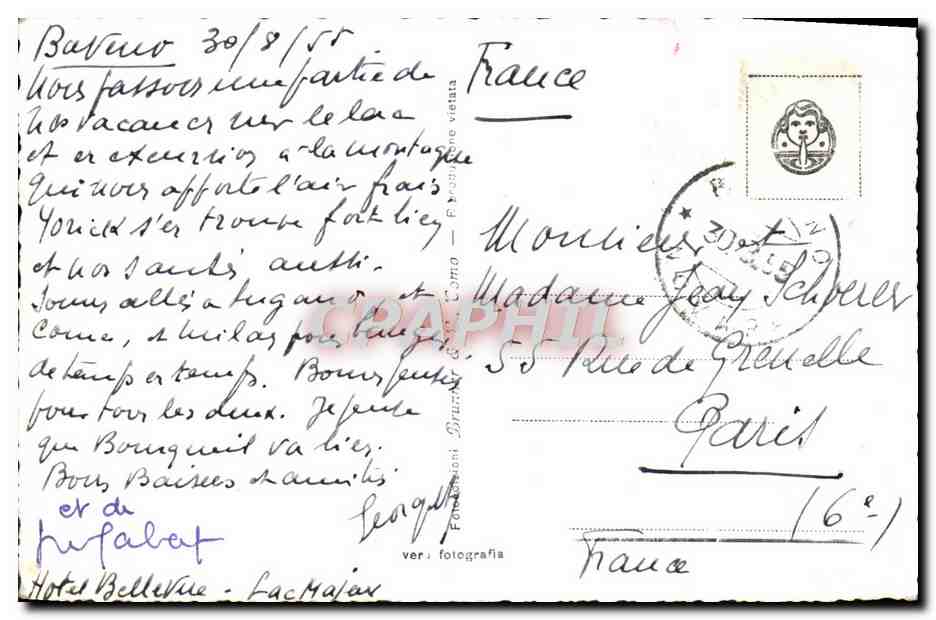 Baveno 30/8/55.
Nous passons une partie de
nos vacances sur le lac
et en excursion à la montagne
qui nous apporte l'air frais
Yorick s'en trouve fort bien
et nos santés, aussi.
Sommes allés à Lugano et
Come, et Milan pour
de temps en temps. Bonnes pensées
pour tous les deux. Je pense
que Bourgueil va bien.
Bons Baisers et amitiés
et de
Georgette
Hotel Bellevue - Lac Majeur
France
Monsieur et
Madame Jean Schoerer
55 Rue de Grenelle
Paris
(6e)
France
30.8.55
Fotoedizioni Brunner & Como — Riproduzione vietata
vera fotografia
CPAPHIL